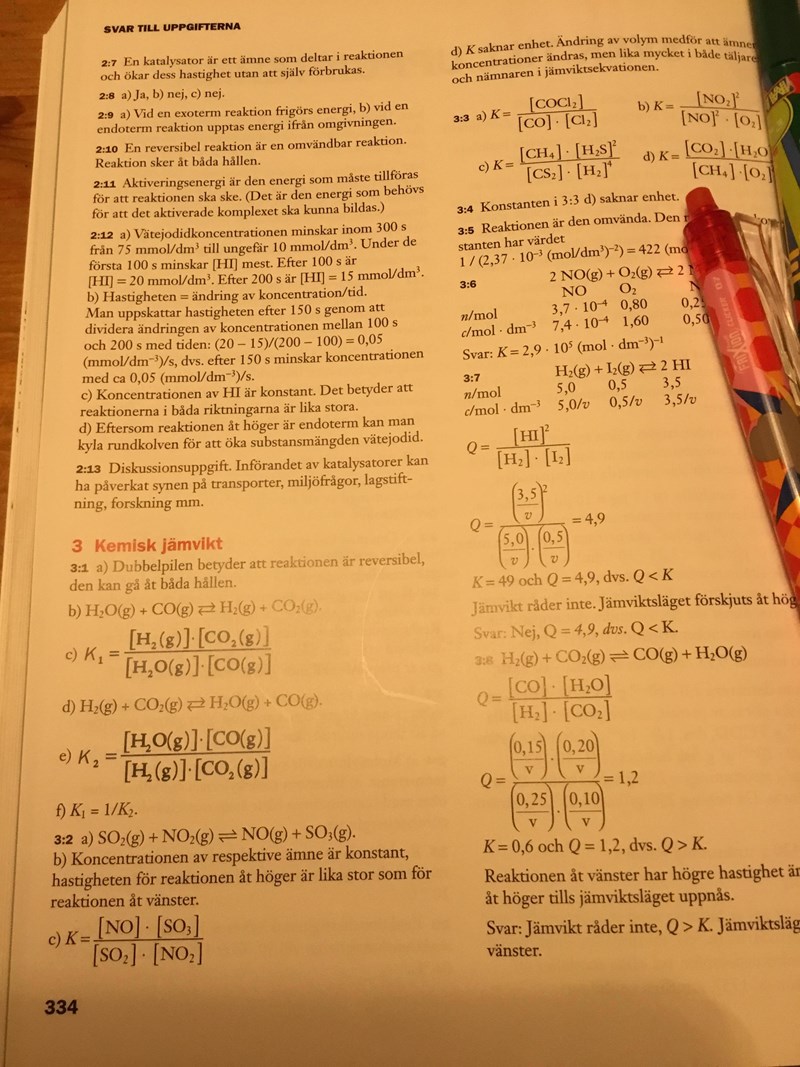 SVAR TILL UPPGIFTERNA
2:7 En katalysator är ett ämne som deltar i reaktionen
och ökar dess hastighet utan att själv förbrukas.
2:8 a) Ja, b) nej, c) nej.
2:9 a) Vid en exoterm reaktion frigörs energi, b) vid en
endoterm reaktion upptas energi ifrån omgivningen.
2:10 En reversibel reaktion är en omvändbar reaktion.
Reaktion sker åt båda hållen.
2:11 Aktiveringsenergi är den energi som måste tillföras
för att reaktionen ska ske. (Det är den energi som behövs
för att det aktiverade komplexet ska kunna bildas.)
2:12 a) Vätejodidkoncentrationen minskar inom 300 s
från 75 mmol/dm³ till ungefär 10 mmol/dm³. Under de
första 100 s minskar [HI] mest. Efter 100 s är
[HI] = 20 mmol/dm³. Efter 200 s är [HI] = 15 mmol/dm³.
b) Hastigheten = ändring av koncentration/tid.
Man uppskattar hastigheten efter 150 s genom att
dividera ändringen av koncentrationen mellan 100 s
och 200 s med tiden: (20 – 15)/(200 – 100) = 0,05
(mmol/dm⁻³)/s, dvs. efter 150 s minskar koncentrationen
med ca 0,05 (mmol/dm⁻³)/s.
c) Koncentrationen av HI är konstant. Det betyder att
reaktionerna i båda riktningarna är lika stora.
d) Eftersom reaktionen åt höger är endoterm kan man
kyla rundkolven för att öka substansmängden vätejodid.
2:13 Diskussionsuppgift. Införandet av katalysatorer kan
ha påverkat synen på transporter, miljöfrågor, lagstift-
ning, forskning mm.
3 Kemisk jämvikt
3:1 a) Dubbelpilen betyder att reaktionen är reversibel,
den kan gå åt båda hållen.
b) H₂O(g) + CO(g) ⇄ H₂(g) + CO₂(g).
c) K₁ = [H₂(g)]·[CO₂(g)]
[H₂O(g)]·[CO(g)]
d) H₂(g) + CO₂(g) ⇄ H₂O(g) + CO(g).
e) K₂ = [H₂O(g)]·[CO(g)]
[H₂(g)]·[CO₂(g)]
f) K₁ = 1/K₂.
3:2 a) SO₂(g) + NO₂(g) ⇌ NO(g) + SO₃(g).
b) Koncentrationen av respektive ämne är konstant,
hastigheten för reaktionen åt höger är lika stor som för
reaktionen åt vänster.
c) K = [NO] · [SO₃]
[SO₂] · [NO₂]
334
d) K saknar enhet. Ändring av volym medför att
koncentrationer ändras, men lika mycket i både
och nämnaren i jämviktsekvationen.
3:3 a) K = [COCl₂] b) K = [NO₂]²
[CO] · [Cl₂] [NO]² · [O₂]
c) K = [CH₄] · [H₂S]² d) K = [CO₂] · [H₂O
[CS₂] · [H₂]⁴ [CH₄] · [O₂]
3:4 Konstanten i 3:3 d) saknar enhet.
3:5 Reaktionen är den omvända. Den
stanten har värdet
1 / (2,37 · 10⁻³ (mol/dm³)⁻²) = 422
3:6 2 NO(g) + O₂(g) ⇄ 2
NO O₂
n/mol 3,7 · 10⁻⁴ 0,80
c/mol · dm⁻³ 7,4 · 10⁻⁴ 1,60
Svar: K = 2,9 · 10⁵ (mol · dm⁻³)⁻¹
3:7 H₂(g) + I₂(g) ⇄ 2 HI
n/mol 5,0 0,5 3,5
c/mol · dm⁻³ 5,0/v 0,5/v 3,5/v
Q = [HI]²
[H₂] · [I₂]
Q = (3,5/v)² / ((5,0/v) · (0,5/v)) = 4,9
K = 49 och Q = 4,9, dvs. Q < K
Jämvikt råder inte. Jämviktsläget förskjuts åt
Svar: Nej, Q = 4,9, dvs. Q < K.
3:8 H₂(g) + CO₂(g) ⇌ CO(g) + H₂O(g)
Q = [CO] · [H₂O]
[H₂] · [CO₂]
Q = ((0,15/v) · (0,20/v)) / ((0,25/v) · (0,10/v)) = 1,2
K = 0,6 och Q = 1,2, dvs. Q > K.
Reaktionen åt vänster har högre hastighet
åt höger tills jämviktsläget uppnås.
Svar: Jämvikt råder inte, Q > K.
vänster.